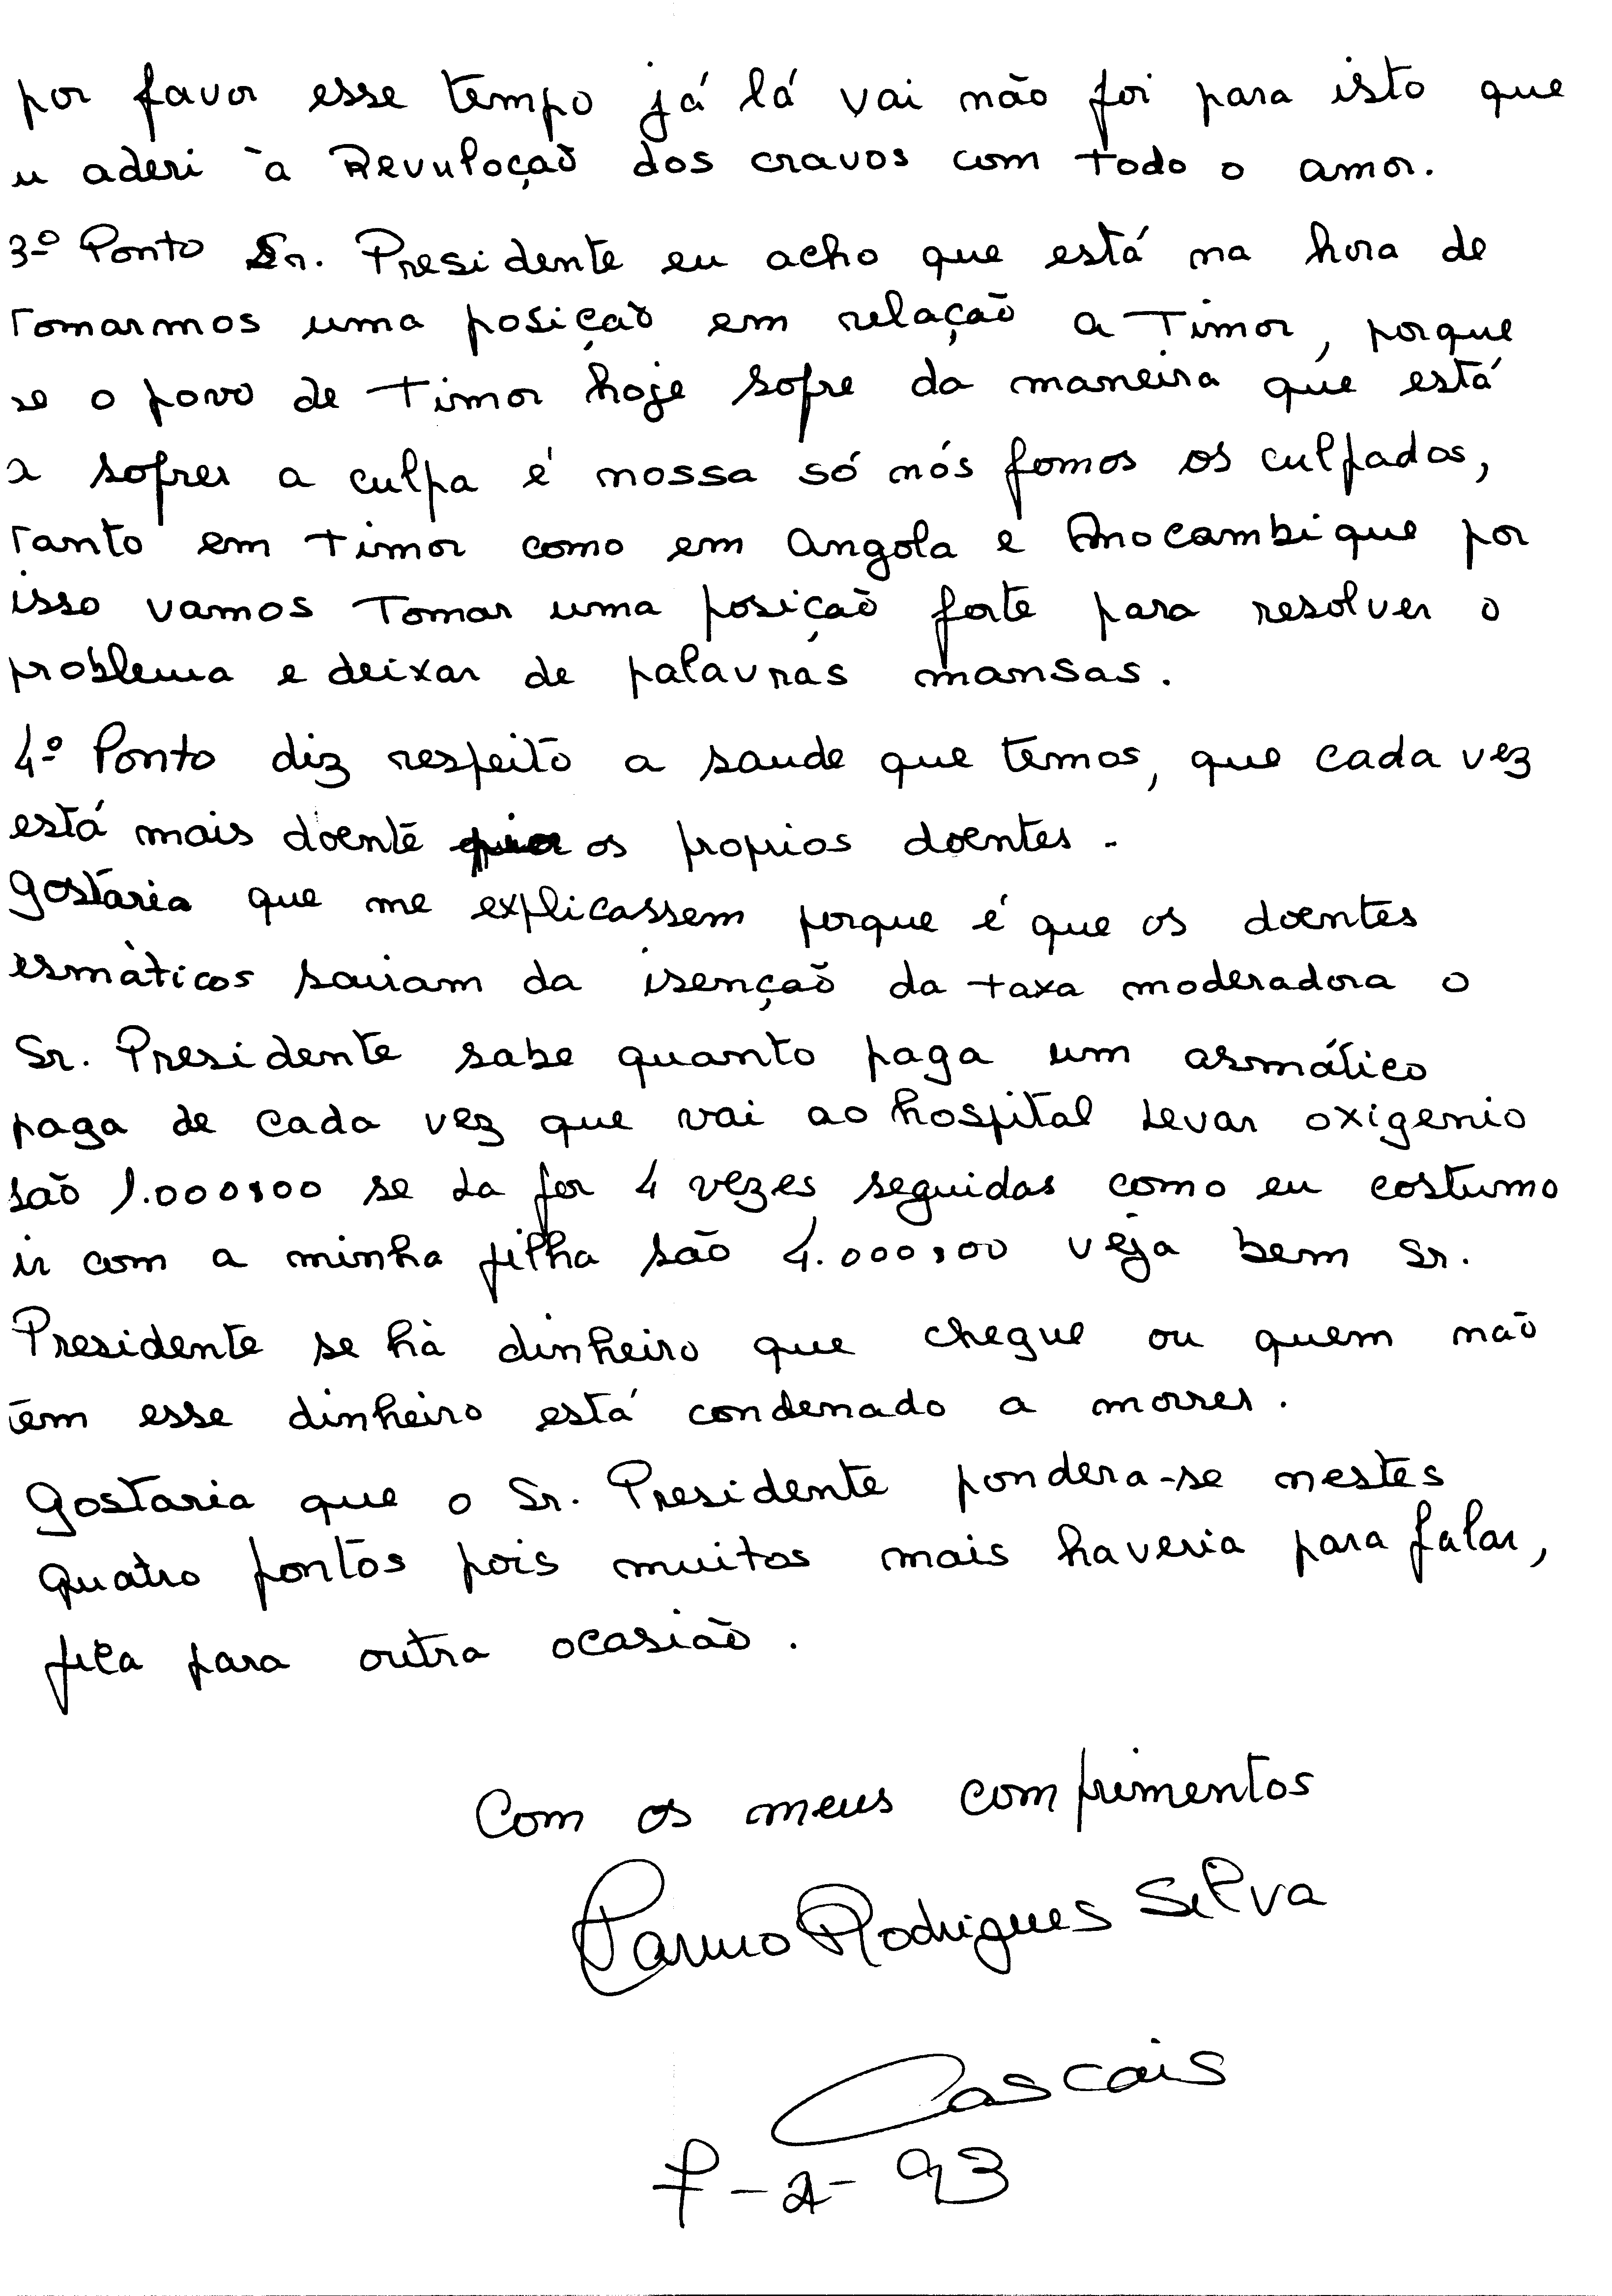 por favor esse tempo já lá vai não foi para isto que
u aderi à Revuloção dos cravos com todo o amor.
3º Ponto Sr. Presidente eu acho que está na hora de
tomarmos uma posição em relação a Timor, porque
se o povo de Timor hoje sofre da maneira que está
a sofrer a culpa é nossa só nós fomos os culpados,
tanto em Timor como em Angola e Mocambique por
isso vamos tomar uma posição forte para resolver o
problema e deixar de palavras mansas.
4º Ponto diz respeito a saude que temos, que cada vez
está mais doente os proprios doentes.
gostaria que me explicassem porque é que os doentes
esmàticos sairam da isenção da taxa moderadora o
Sr. Presidente sabe quanto paga um asmático
paga de cada vez que vai ao hospital levar oxigenio
são 1.000$00 se la for 4 vezes seguidas como eu costumo
ir com a minha filha são 4.000$00 veja bem Sr.
Presidente se hà dinheiro que chegue ou quem não
tem esse dinheiro está condenado a morrer.
gostaria que o Sr. Presidente pondera-se nestes
quatro pontos pois muitos mais haveria para falar,
fica para outra ocasião.
Com os meus comprimentos
Rodrigues Silva
Cascais
7-2-93